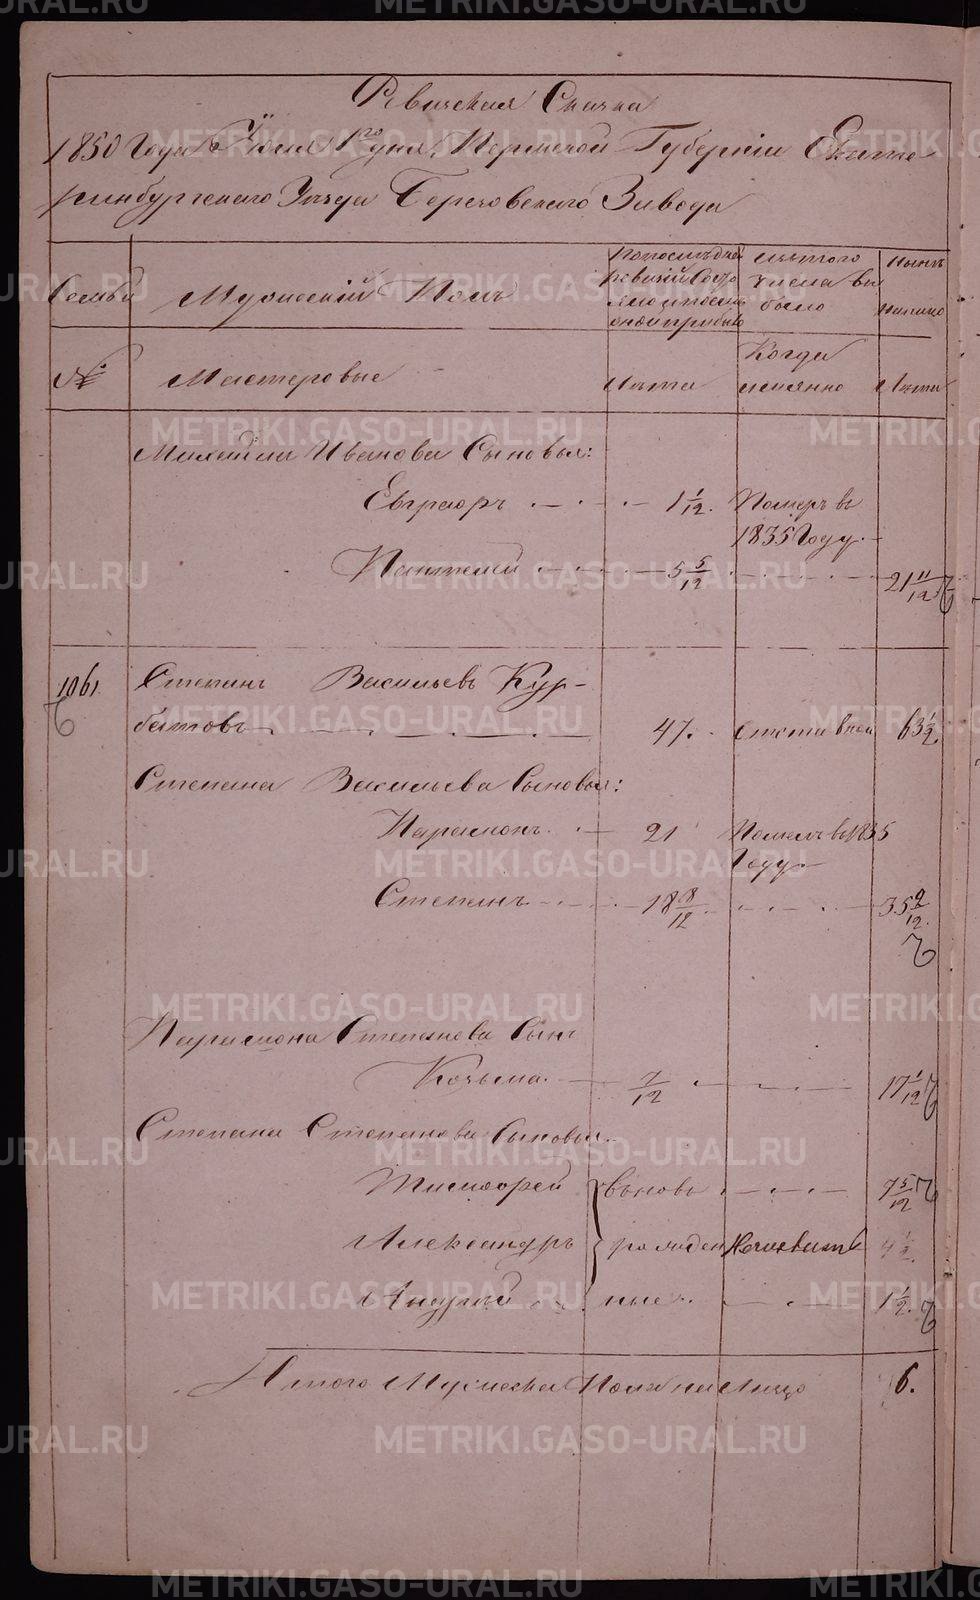 Ревизская Сказка
1850 Года Июля 1го дня, Пермской Губерніи Екате-
ринбургскаго Уезда Березовскаго Завода
Семьи
Мужескій Полъ
По последней ревизіи Состояло и после оной прибыло
Изъ того числа выбыло
Ныне на лицо
№
Мастеровые
Лета
Когда именно
Лета
Михаила Иванова Сыновья:
Евграфъ 1 1/12. Померъ въ
1835 Году.
Пантелей 5 5/12 21 11/12
1061. Степанъ Васильевъ Кур-
батовъ 47. Отставной 63 1/2.
Степана Васильева Сыновья:
Парамонъ 21 Померъ въ 1835
Году
Степанъ 18 8/12 35 2/12.
Парамона Степанова Сынъ
Козьма. 7/12 17 1/12
Степана Степанова Сыновья.
Тимофей вновь 7 5/12
Александръ рожден Неизвест 4 1/2.
Андрей ные 1 1/2.
Итого Мужеска Пола на Лицо 6.
METRIKI.GASO-URAL.RU